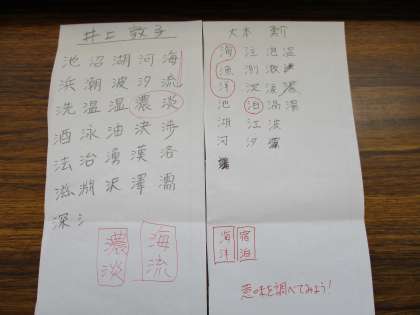 井上 敦子
池 沼 湖 河 海
浜 潮 波 汐 流
洗 温 湿 濃 淡
酒 泳 油 決 渉
法 治 湧 漢 洛
滋 淵 沢 澤 濡
深 氵
濃淡
海流
大本
海 注 泡 温
漁 測 浪
洋 沈 液
池 泊 渦 湯
湖 江 波
河 汐
海洋
宿泊
意味を調べてみよう!